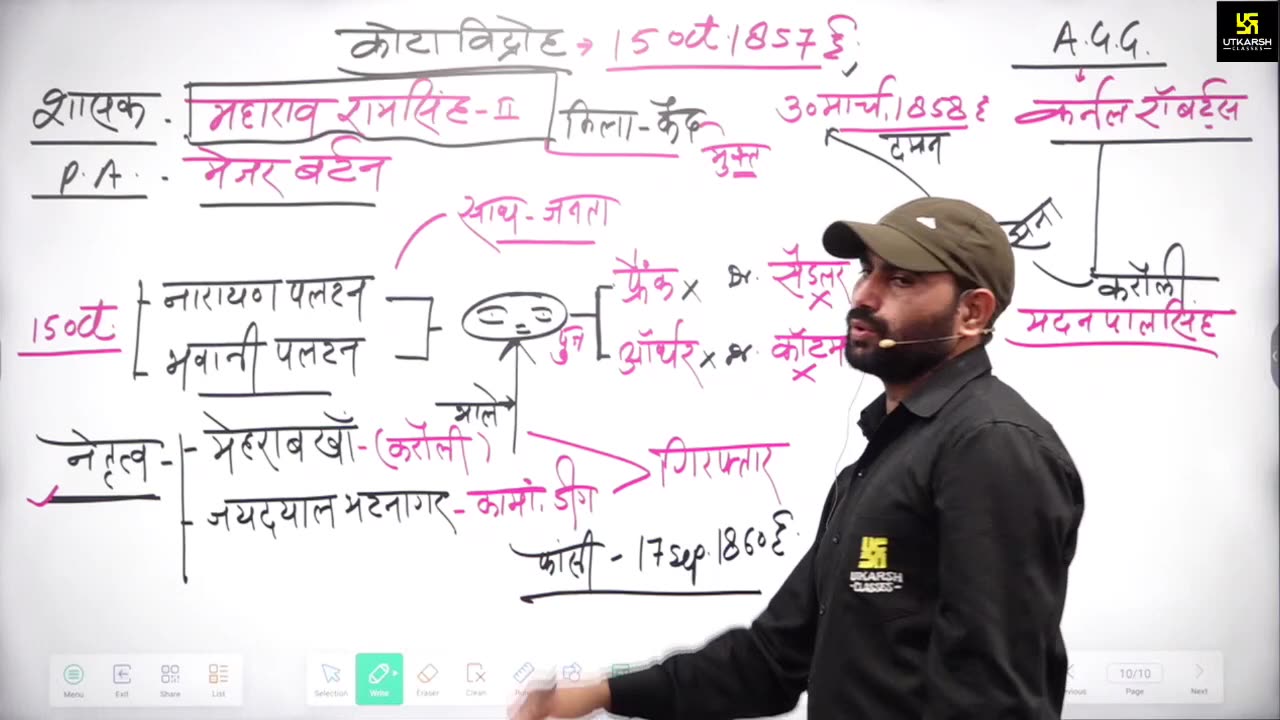 कोटा विद्रोह → 15 Oct. 1857 ई.
A.G.G.
UTKARSH
CLASSES
शासक - महाराव रामसिंह-II
किला-कैद
मुक्त
30 मार्च, 1858 ई
दमन
कर्नल रॉबर्ट्स
P.A. - मेजर बर्टन
साथ - जनता
सेना
करौली
मदनपालसिंह
15 Oct.
नारायण पलटन
भवानी पलटन
पुत्र
फ्रैंक x डा. सैडलर x
ऑर्थर x डा. कॉटम x
भाले
नेतृत्व - मेहराब खाँ - (करौली)
जयदयाल भटनागर - कामां. डीग
गिरफ्तार
फांसी - 17 Sep. 1860 ई.
UTKARSH
CLASSES
Menu
Exit
Share
List
Selection
Write
Eraser
Clean
10/10
Page
Next